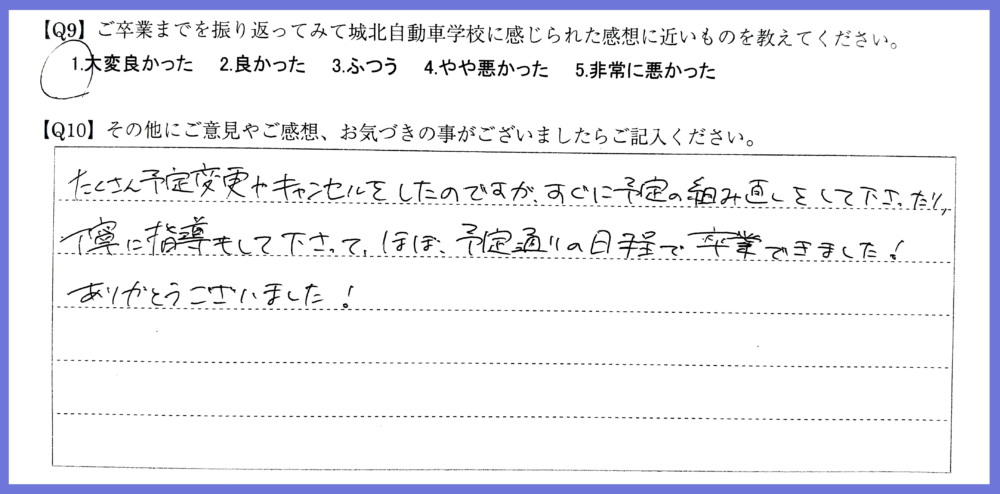 【Q9】ご卒業までを振り返ってみて城北自動車学校に感じられた感想に近いものを教えてください。
1.大変良かった 2.良かった 3.ふつう 4.やや悪かった 5.非常に悪かった
【Q10】その他にご意見やご感想、お気づきの事がございましたらご記入ください。
たくさん予定変更やキャンセルをしたのですが、すぐに予定の組み直しをして下さったり、
丁寧に指導もして下さって、ほぼ、予定通りの日程で卒業できました！
ありがとうございました！